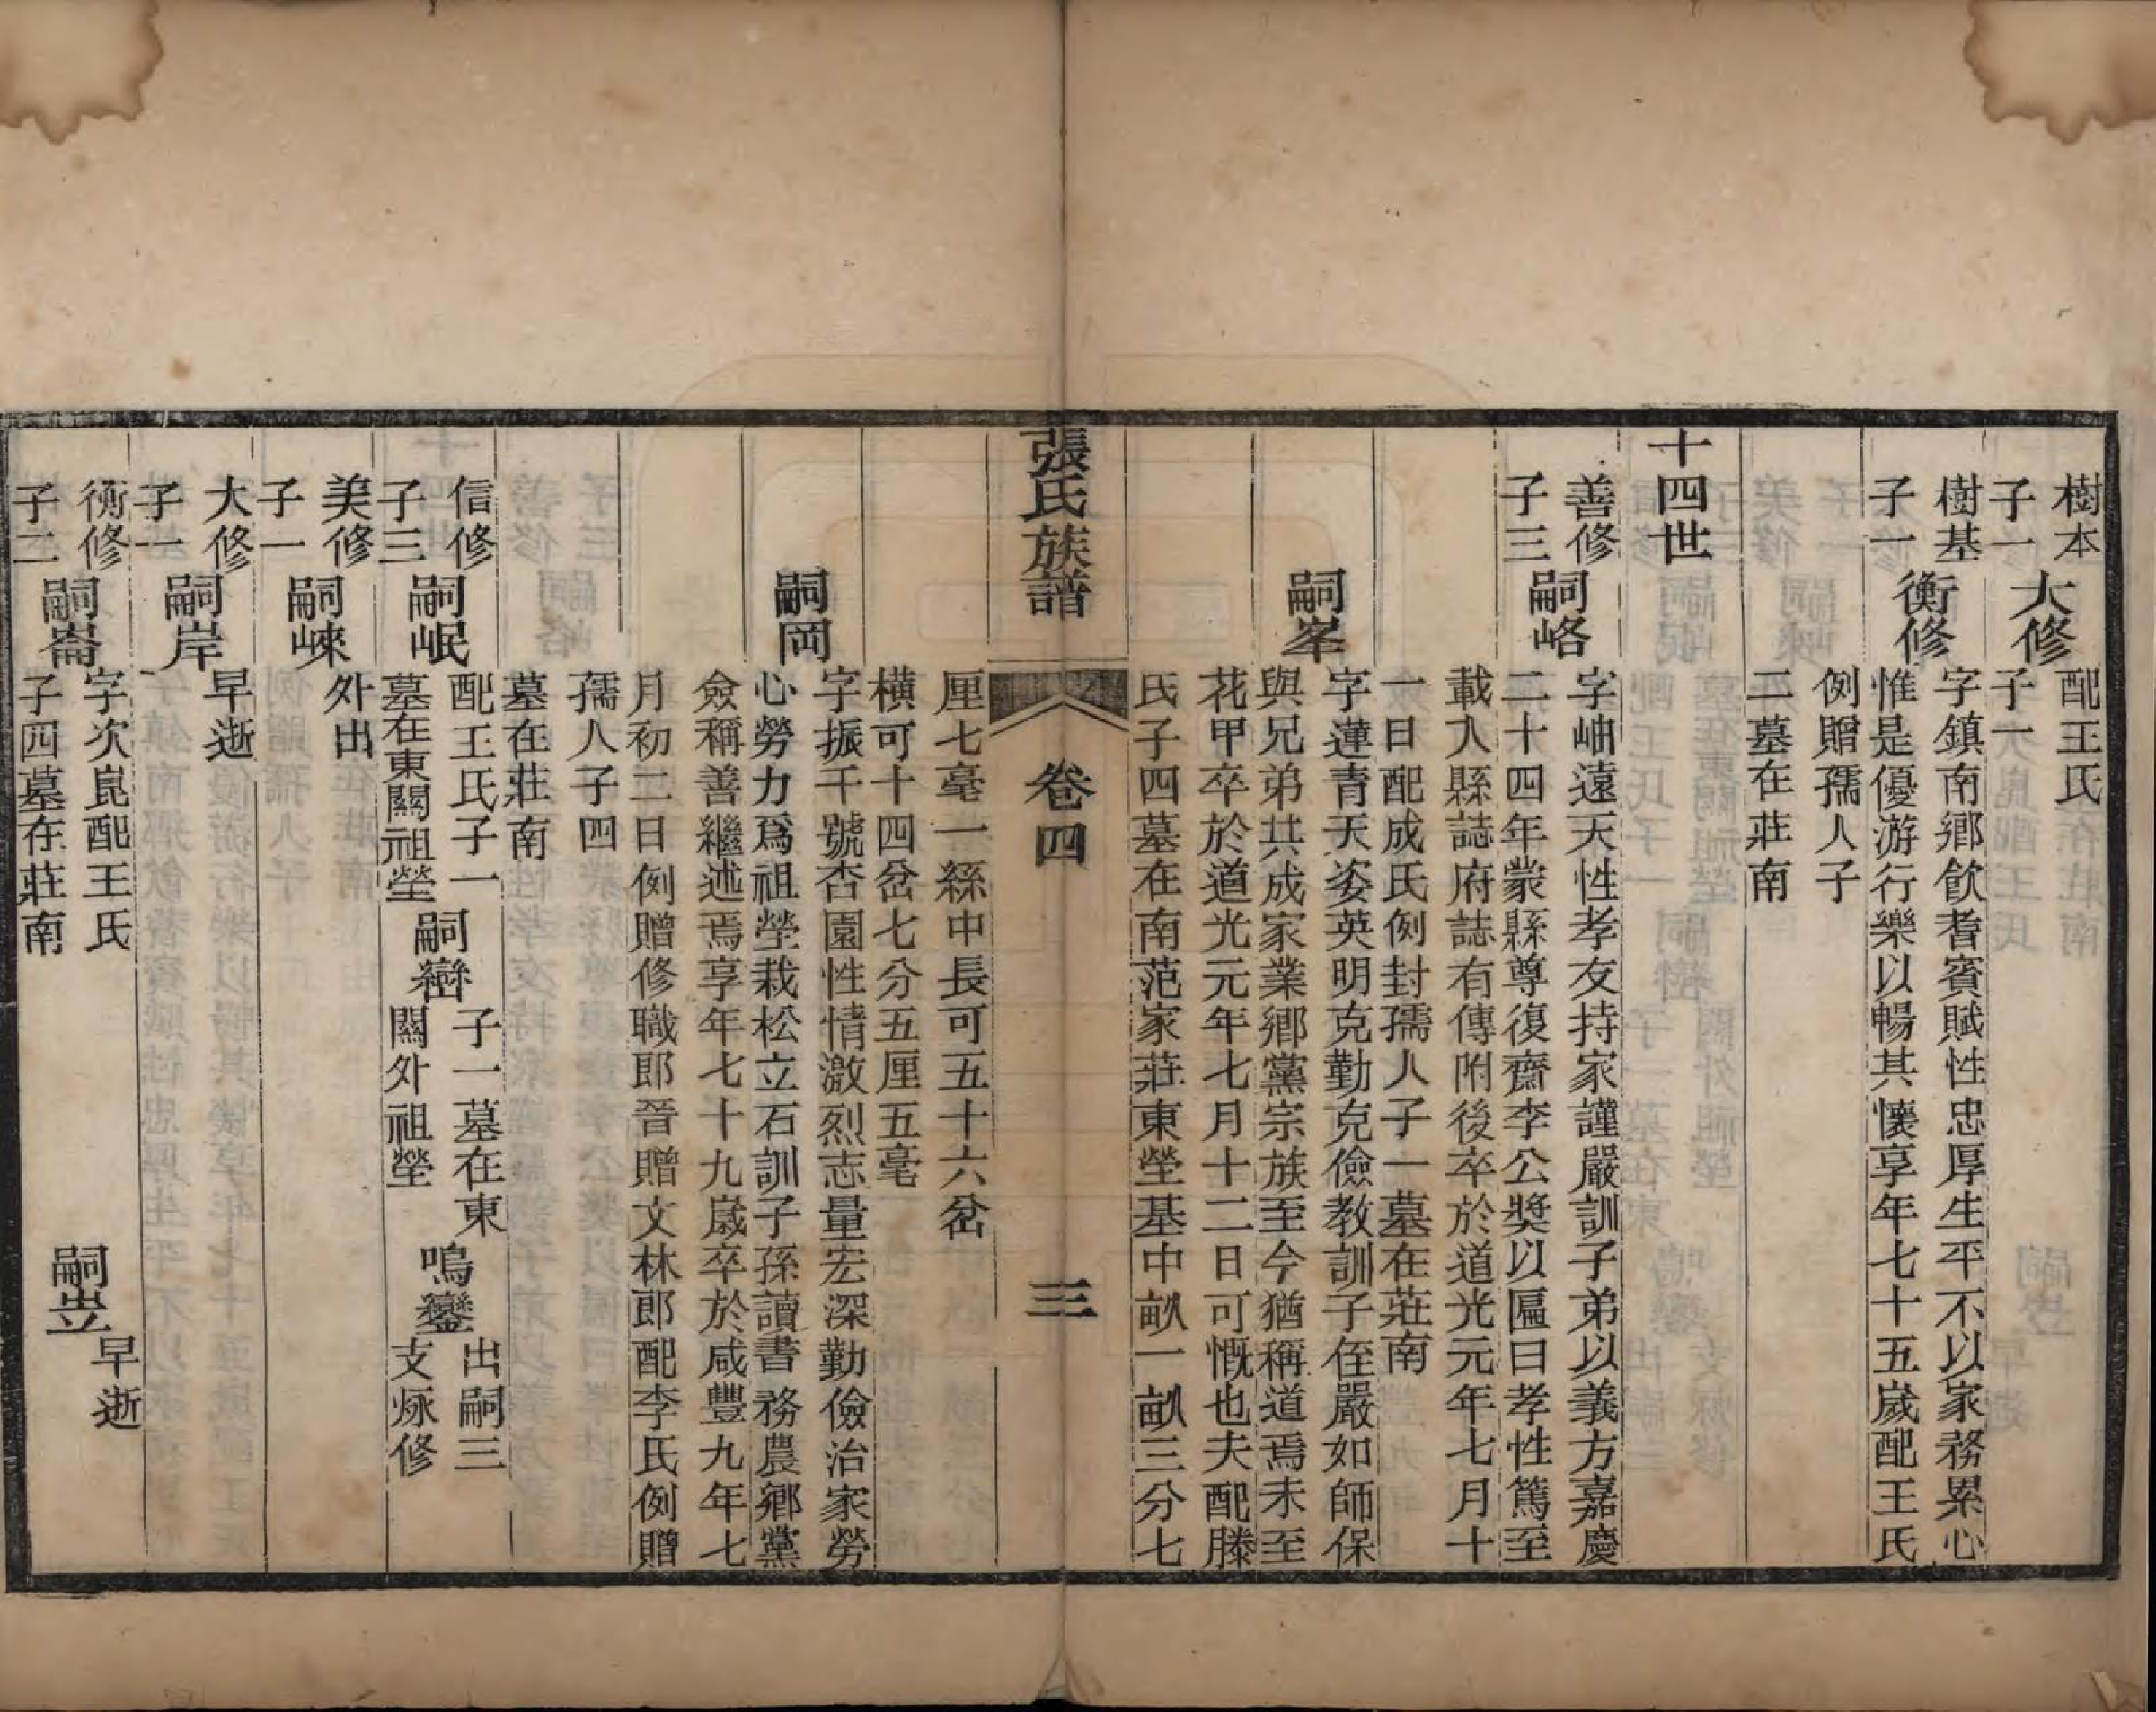 樹本
子一
大修
配王氏
子一
樹基
子一
衡修
字鎮南鄉飲耆賓賦性忠厚生平不以家務累心
惟是優游行樂以暢其懷享年七十五歲配王氏
例贈孺人子
二墓在莊南
十四世
善修
子三
嗣峈
字岫遠天性孝友持家謹嚴訓子弟以義方嘉慶
二十四年蒙縣尊復齋李公獎以匾曰孝性篤至
載入縣誌府誌有傳附後卒於道光元年七月十
一日配成氏例封孺人子一墓在莊南
嗣峯
字蓮青天姿英明克勤克儉教訓子侄嚴如師保
與兄弟共成家業鄉黨宗族至今猶稱道焉未至
花甲卒於道光元年七月十二日可慨也夫配滕
氏子四墓在南范家莊東塋基中畝一畝三分七
張氏族譜
卷四
三
厘七毫一絲中長可五十六岔
橫可十四岔七分五厘五毫
嗣岡
字振千號杏園性情激烈志量宏深勤儉治家勞
心勞力爲祖塋栽松立石訓子孫讀書務農鄉黨
僉稱善繼述焉享年七十九歲卒於咸豐九年七
月初二日例贈修職郎晉贈文林郎配李氏例贈
孺人子四
墓在莊南
信修
子三
嗣岷
配王氏子一
墓在東關祖塋
嗣巒
子一墓在東
關外祖塋
鳴鑾
出嗣三
支烌修
美修
子一
嗣崍
外出
大修
子一
嗣岸
早逝
衡修
子二
嗣崙
字次崑配王氏
子四墓在莊南
嗣岦
早逝